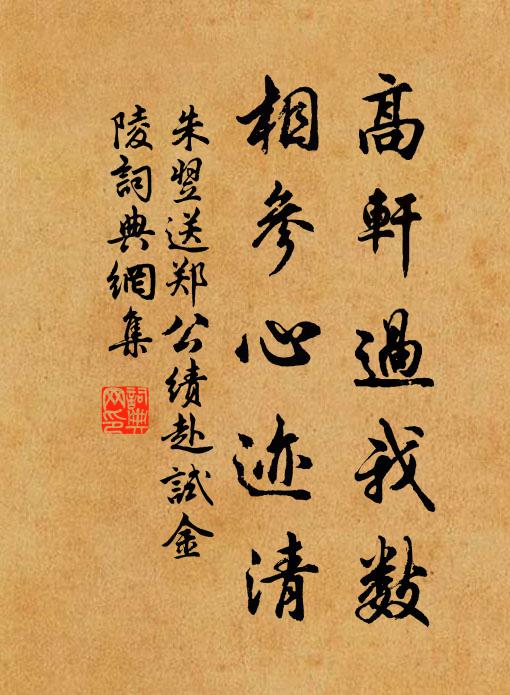 高軒過我數
相參心迹清
朱翌送郑公绩赴試金
陵詞典網集
詞典
网印